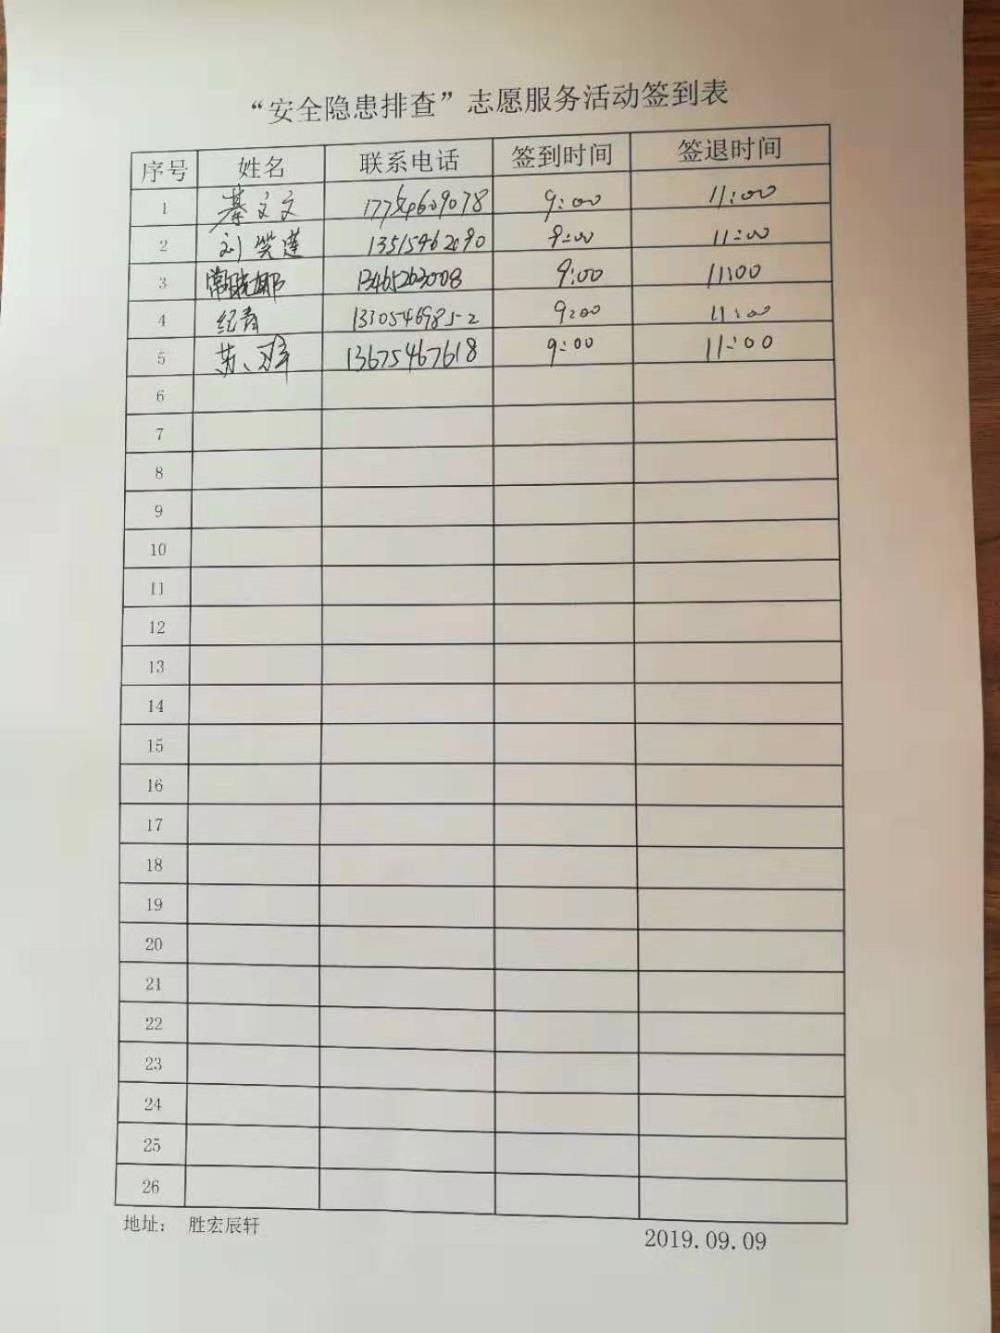 “安全隐患排查”志愿服务活动签到表
序号 姓名 联系电话 签到时间 签退时间
1 綦文文 17754609078 9:00 11:00
2 刘笑莲 13515462090 9:00 11:00
3 13465263008 9:00 11:00
4 纪青 13305469852 9:00 11:00
5 苏 13675467618 9:00 11:00
6
7
8
9
10
11
12
13
14
15
16
17
18
19
20
21
22
23
24
25
26
地址： 胜宏辰轩
2019.09.09